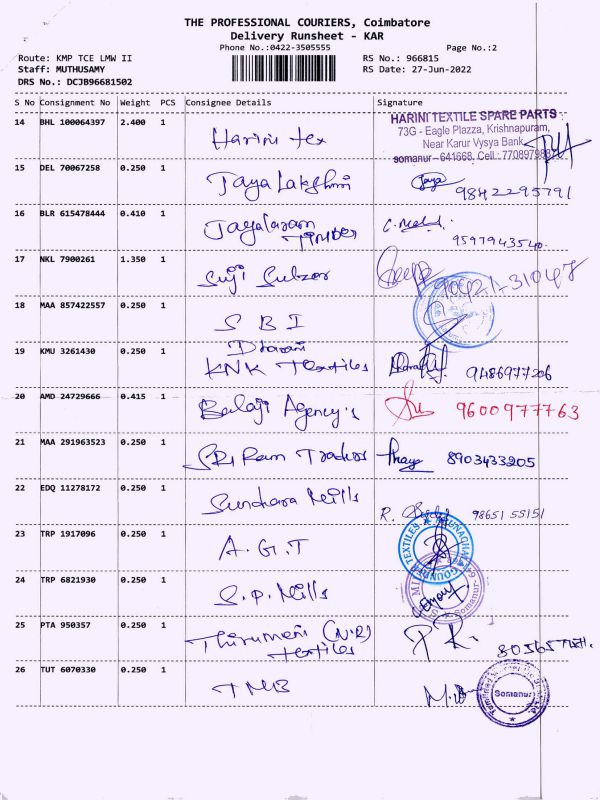 THE PROFESSIONAL COURIERS, Coimbatore
Delivery Runsheet - KAR
Phone No.:0422-3505555
Page No.:2
Route: KMP TCE LMW II
RS No.: 966815
Staff: MUTHUSAMY
RS Date: 27-Jun-2022
DRS No.: DCJB96681502
S No Consignment No Weight PCS Consignee Details Signature
14 BHL 100064397 2.400 1 Harini tex
HARINI TEXTILE SPARE PARTS
73G - Eagle Plazza, Krishnapuram,
Near Karur Vysya Bank,
somanur - 641668, Cell.:
15 DEL 70067258 0.250 1 Jaya Lakshmi Jaya 9842295791
16 BLR 615478444 0.410 1 Jayalaram
TIMBER 9597943540.
17 NKL 7900261 1.350 1 Suji Sulzer
18 MAA 857422557 0.250 1 S B I
19 KMU 3261430 0.250 1 Dharani
KNK Textiles 9486977206
20 AMD 24729666 0.415 1 Balaji Agency's 9600977763
21 MAA 291963523 0.250 1 SRI Ram Traders 8903433205
22 EDQ 11278172 0.250 1 Sundhara Mills R. 98651 55151
23 TRP 1917096 0.250 1 A.G.T
24 TRP 6821930 0.250 1 S.P. Mills
25 PTA 950357 0.250 1 Thirumeni (N.R)
textiles P.K.
26 TUT 6070330 0.250 1 TMB
Somanur